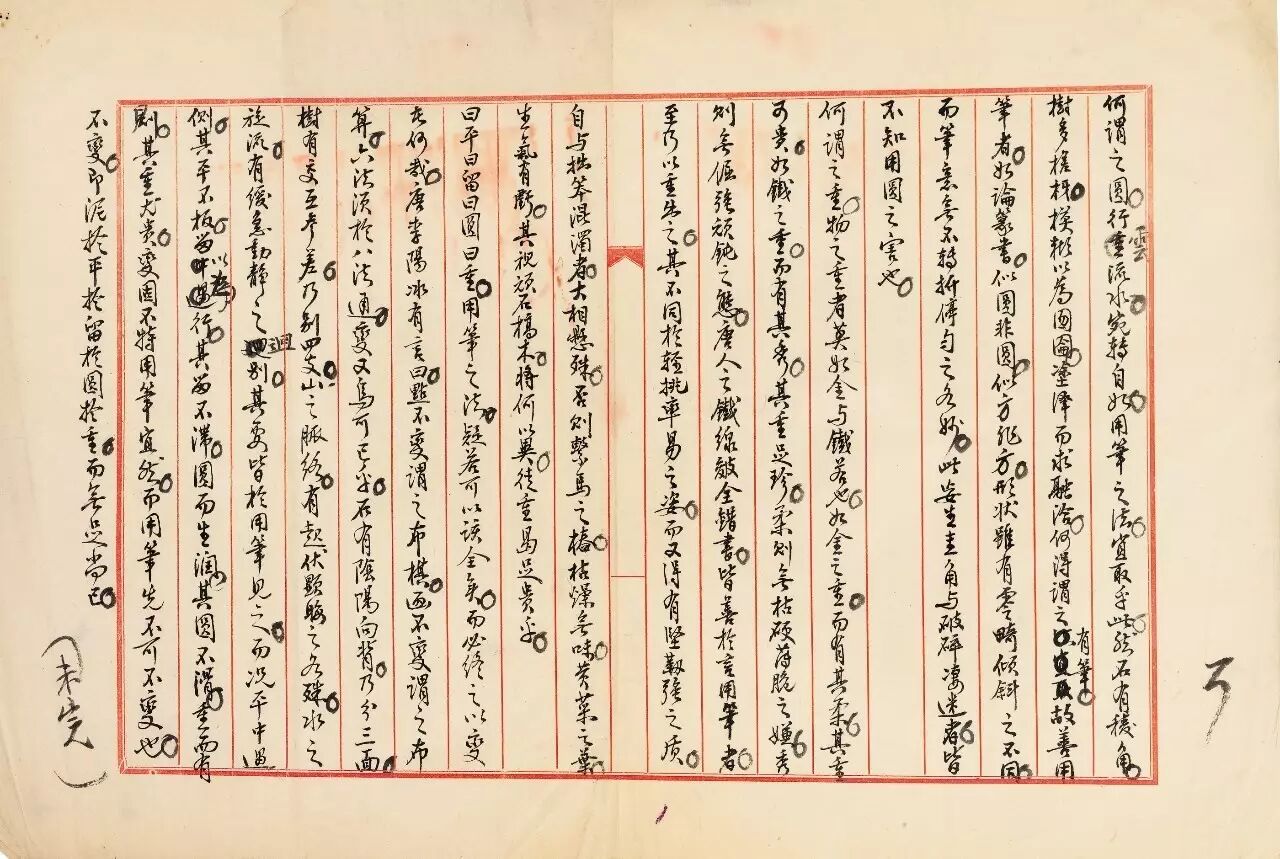 何謂之圓行雲流水宛轉自如用筆之法宜取乎此然石有稜角
樹多槎枒模糊以為囫圇塗澤而求融洽何得謂之有筆故善用
筆者如論篆書似圓非圓似方非方形狀雖有零畸傾斜之不同
而筆意無不轉折停勻之各妙此妄生圭角與破碎淒迷者皆
不知用圓之害也
何謂之重物之重者莫如金與鐵若也如金之重而有其柔其重
可貴如鐵之重而有其秀其重足珍柔則無枯硬薄脆之嫌秀
則無倔強頑鈍之態唐人之鐵線皴金錯書皆善於言用筆者
至乃以重失之其不同於輕挑率易之姿而又得有堅韌強之质
自与拙笨混濁者大相懸殊否則繫馬之樁枯燥無味耆菜之葉
生氣有虧其視頑石槁木將何以異徒重曷足貴乎
曰平曰留曰圓曰重用筆之法疑若可以該全矣而必終之以變
者何哉唐李陽冰有言曰點不變謂之布棋画不變謂之布
算六法須於八法通變又烏可已乎石有陰陽向背乃分三面
樹有交互參差乃別四支山之脈絡有起伏顯晦之各殊水之
旋流有緩急動靜之迥別其要皆於用筆見之而況平中
側其平不板留以為行其留不滯圓而生潤其圓不滑重而有
則其重尤貴變固不特用筆宜然而用筆先不可不變也
不變即泥於平於留於圓於重而無足尚已
（未完）